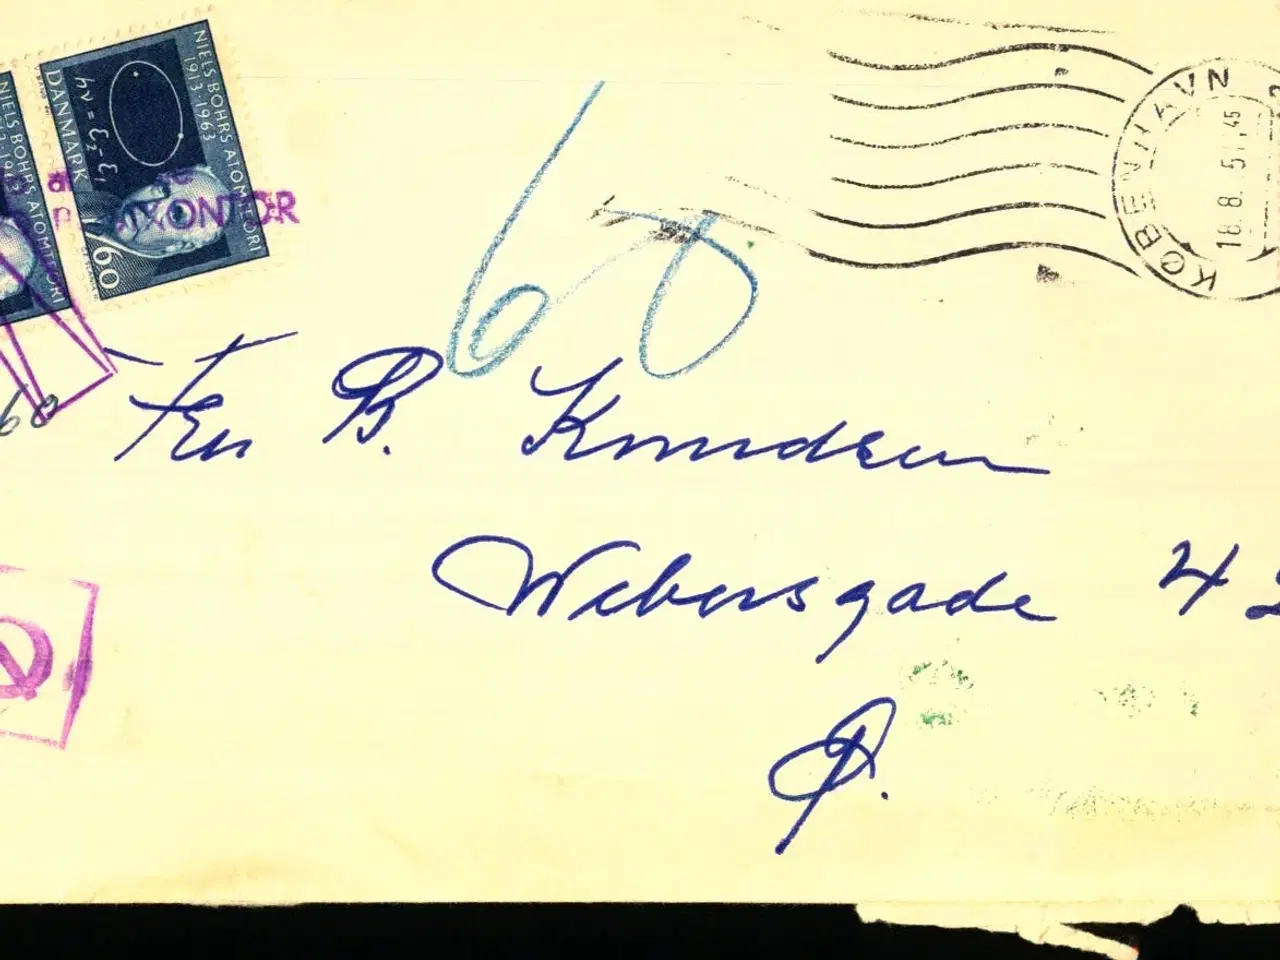 NIELS BOHRS ATOMTEORI
1913·1963
hν = ε₂-ε₁
DANMARK
60
NIELS BOHRS ATOMTEORI
KØBENHAVN
18.8.51,45
60
60
Fru B. Knudsen
Webersgade 4
Ø.